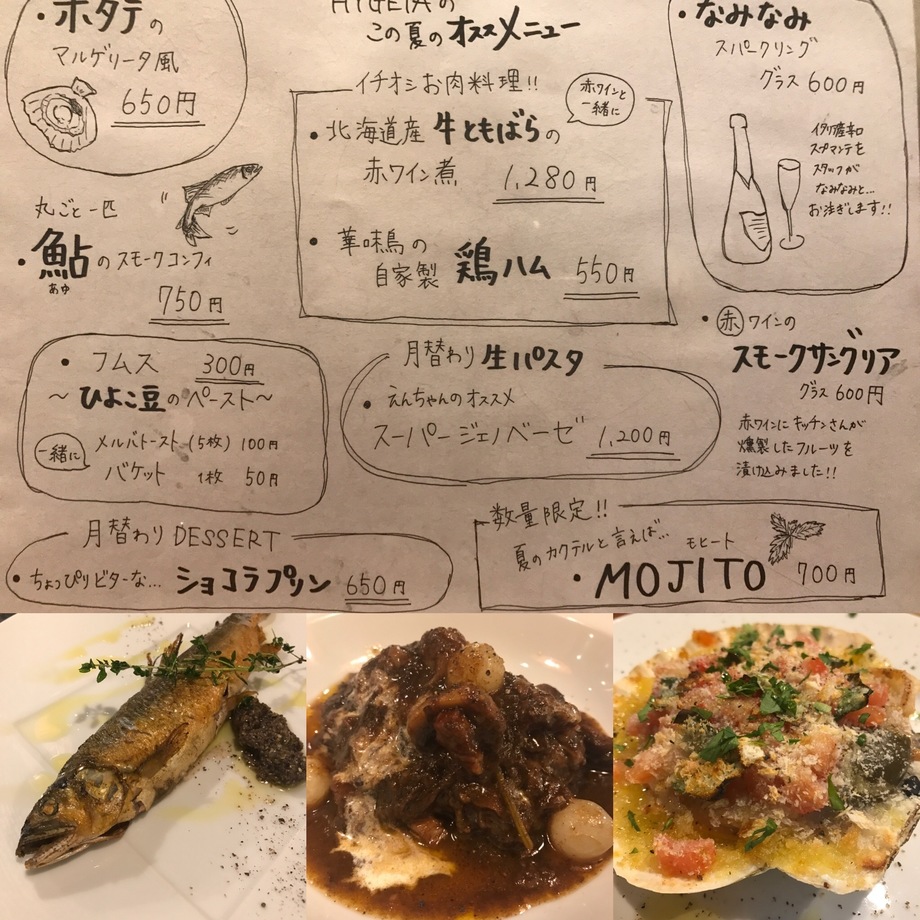 ホタテの
マルゲリータ風
650円
HYGEIAの
この夏のオススメニュー
イチオシお肉料理!!
赤ワインと
一緒に
・北海道産 牛ともばらの
赤ワイン煮 1,280円
・華味鳥の
自家製 鶏ハム 550円
・なみなみ
スパークリング
グラス 600円
イタリア産辛口
スプマンテを
スタッフが
なみなみと…
お注ぎします!!
丸ごと一匹
・鮎のスモークコンフィ
あゆ
750円
・フムス 300円
～ひよこ豆のペースト～
一緒に
メルバトースト(5枚) 100円
バケット 1枚 50円
月替わり 生パスタ
・えんちゃんのオススメ
スーパージェノベーゼ 1,200円
・赤ワインの
スモークサングリア
グラス 600円
赤ワインにキッチンさんが
燻製したフルーツを
漬け込みました!!
月替わり DESSERT
・ちょっぴりビターな… ショコラプリン 650円
数量限定!!
夏のカクテルと言えば… モヒート
・MOJITO 700円